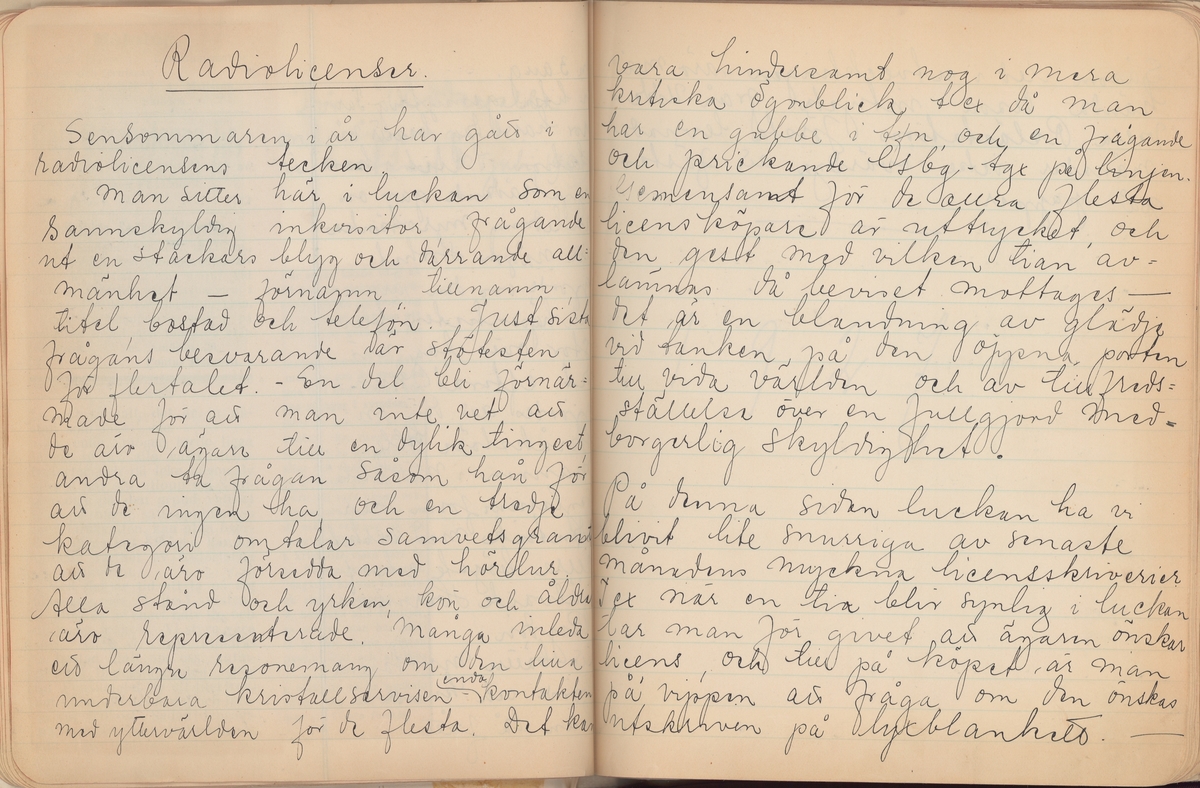 Radiolicenser.
Sensommaren i år har gått i
radiolicensens tecken
Man sitter här i luckan som en
sannskyldig inkvisitor, frågande
ut en stackars blyg och darrande all=
mänhet — förnamn, tillnamn
titel bostad och telefon. Just sista
frågans besvarande är stötesten
för flertalet. - En del bli förnär=
made för att man inte vet att
de äro ägare till en dylik tingest,
andra ta frågan såsom hån för
att de ingen ha, och en tredje
kategori omtalar samvetsgrant
att de äro försedda med hörlur,
Alla stånd och yrken, kön och åldra
äro representerade. Många inleda
ett längre resonemang om den lilla
underbara kristallservisen - enda kontakten
med yttervärlden för de flesta. Det kan
vara hindersamt nog i mera
kritiska ögonblick, t ex då man
har en gubbe i tfn, och en frågande
och prickande Gsbg - tgx på linjen.
Gemensamt för de allra flesta
licensköpare är uttrycket, och
den gest med vilken tian av=
lämnas då beviset mottages —
det är en blandning av glädje
vid tanken på den öppna porten
till vida världen och av tillfreds=
ställelse över en fullgjord med=
borgerlig skyldighet.
På denna sidan luckan ha vi
blivit lite snurriga av senaste
månadens myckna licensskriverier
T ex när en tia blir synlig i luckan
tar man för givet att ägaren önskar
licens, och till på köpet är man
på vippen att fråga om den önskas
utskriven på lyxblankett. —